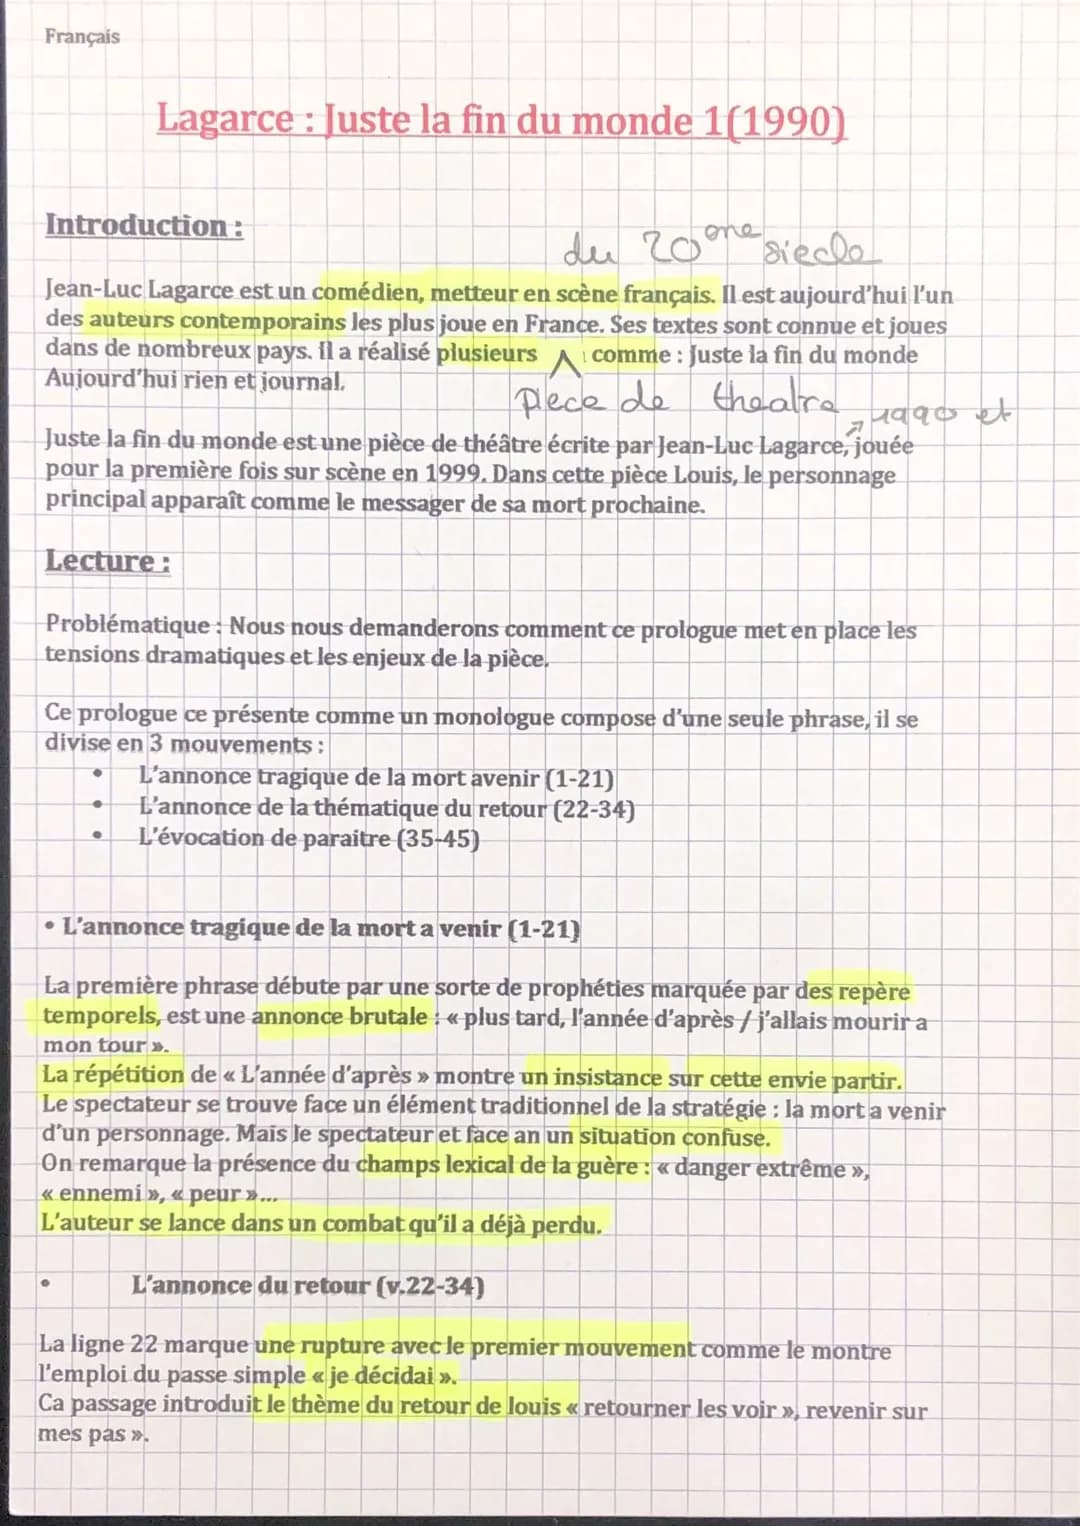 Français
Lagarce : Juste la fin du monde 1(1990)
Introduction :
du 20ème siecle
Jean-Luc Lagarce est un comédien, metteur en scène français. Il est aujourd'hui l'un
des auteurs contemporains les plus joue en France. Ses textes sont connue et joues
dans de nombreux pays. Il a réalisé plusieurs comme : Juste la fin du monde
Aujourd'hui rien et journal.
piece de theatre
1990 et
Juste la fin du monde est une pièce de théâtre écrite par Jean-Luc Lagarce, jouée
pour la première fois sur scène en 1999. Dans cette pièce Louis, le personnage
principal apparaît comme le messager de sa mort prochaine.
Lecture :
Problématique : Nous nous demanderons comment ce prologue met en place les
tensions dramatiques et les enjeux de la pièce.
Ce prologue ce présente comme un monologue compose d'une seule phrase, il se
divise en 3 mouvements :
• L'annonce tragique de la mort avenir (1-21)
• L'annonce de la thématique du retour (22-34)
• L'évocation de paraitre (35-45)
• L'annonce tragique de la mort a venir (1-21)
La première phrase débute par une sorte de prophéties marquée par des repère
temporels, est une annonce brutale : « plus tard, l'année d'après / j'allais mourir a
mon tour ».
La répétition de « L'année d'après » montre un insistance sur cette envie partir.
Le spectateur se trouve face un élément traditionnel de la stratégie : la mort a venir
d'un personnage. Mais le spectateur et face an un situation confuse.
On remarque la présence du champs lexical de la guère : « danger extrême »,
« ennemi », « peur »...
L'auteur se lance dans un combat qu'il a déjà perdu.
• L'annonce du retour (v.22-34)
La ligne 22 marque une rupture avec le premier mouvement comme le montre
l'emploi du passe simple « je décidai ».
Ca passage introduit le thème du retour de louis « retourner les voir », revenir sur
mes pas ».